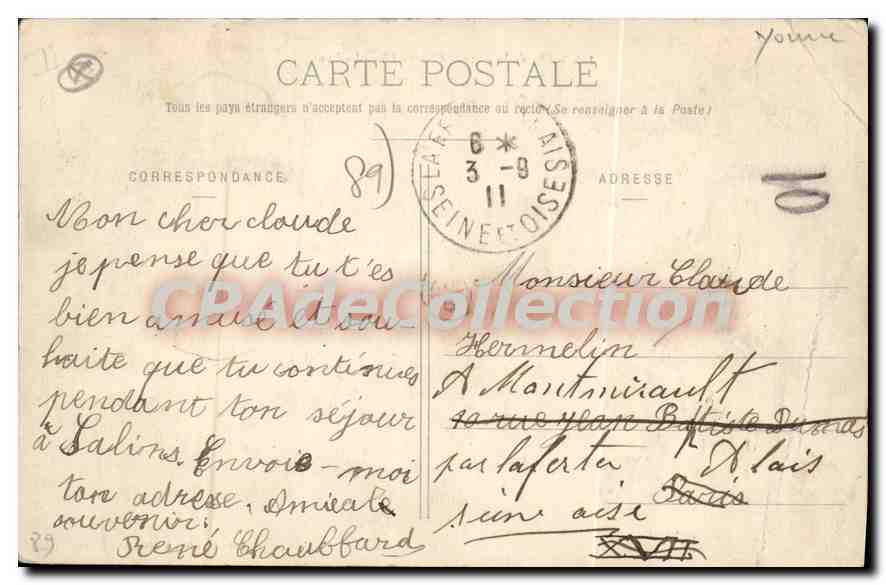 Yonne
CARTE POSTALE
Tous les pays étrangers n'acceptent pas la correspondance au recto (Se renseigner à la Poste)
CORRESPONDANCE
89
ADRESSE
6 *
3 -9
11
SEINE ET OISE
Mon cher claude
je pense que tu t'es
bien amusé et sou-
haite que tu continues
pendant ton séjour
à Salins. Envoie-moi
ton adresse. Amicale
souvenir.
René Chaubbard
Monsieur Claude
Hermelin
A Montmirault
10 rue Jean Baptiste Dumas
par laferter Alais
Paris
seine oise
XVII
89
CPAdeCollection